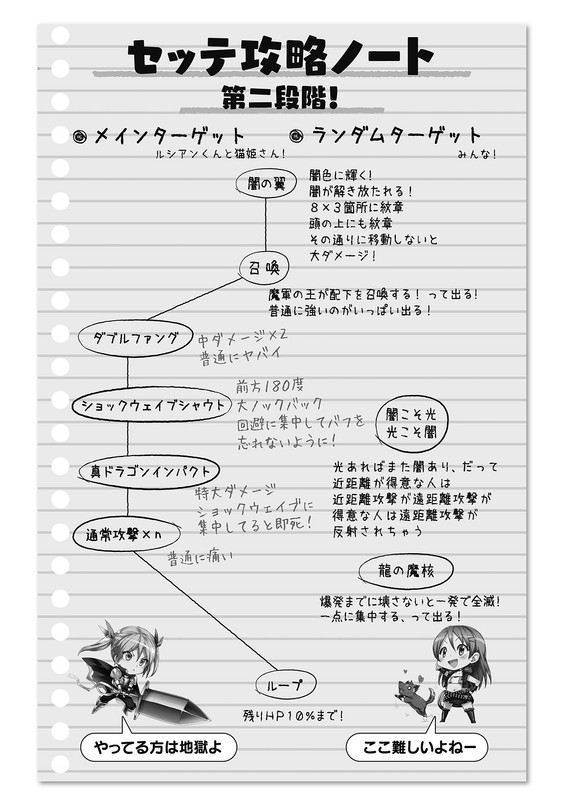 セッテ攻略ノート
第二段階!
◎メインターゲット
ルシアンくんと猫姫さん!
◎ランダムターゲット
みんな!
闇の翼
闇色に輝く!
闇が解き放たれる!
8×3箇所に紋章
頭の上にも紋章
その通りに移動しないと
大ダメージ!
召喚
魔軍の王が配下を召喚する! って出る!
普通に強いのがいっぱい出る!
ダブルファング
中ダメージ×2
普通にヤバイ
ショックウェイブシャウト
前方180度
大ノックバック
回避に集中してバフを
忘れないように!
闇こそ光
光こそ闇
光あればまた闇あり、だって
近距離が得意な人は
近距離攻撃が遠距離攻撃が
得意な人は遠距離攻撃が
反射されちゃう
真ドラゴンインパクト
特大ダメージ
ショックウェイブに
集中してると即死!
通常攻撃×n
普通に痛い
龍の魔核
爆発までに壊さないと一発で全滅!
一点に集中する、って出る!
ループ
残りHP10%まで!
やってる方は地獄よ
ここ難しいよねー